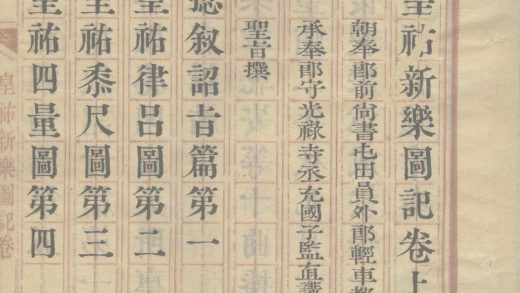 皇祐新樂圖記卷上
朝奉郎前尚書屯田員外郎輕車都
承奉郎守光祿寺丞充國子監直講
聖㫖撰
總叙詔㫖篇第一
皇祐律呂圖第二
皇祐黍尺圖第三
皇祐四量圖第四
皇祐新樂圖記卷